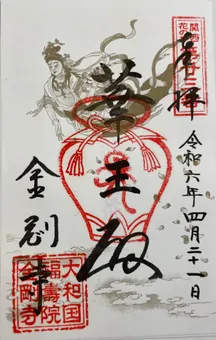 関西花の寺
第廿三番
奉拝
令和六年四月二十一日
華王殿
金剛寺
大和国
福壽院
金剛寺